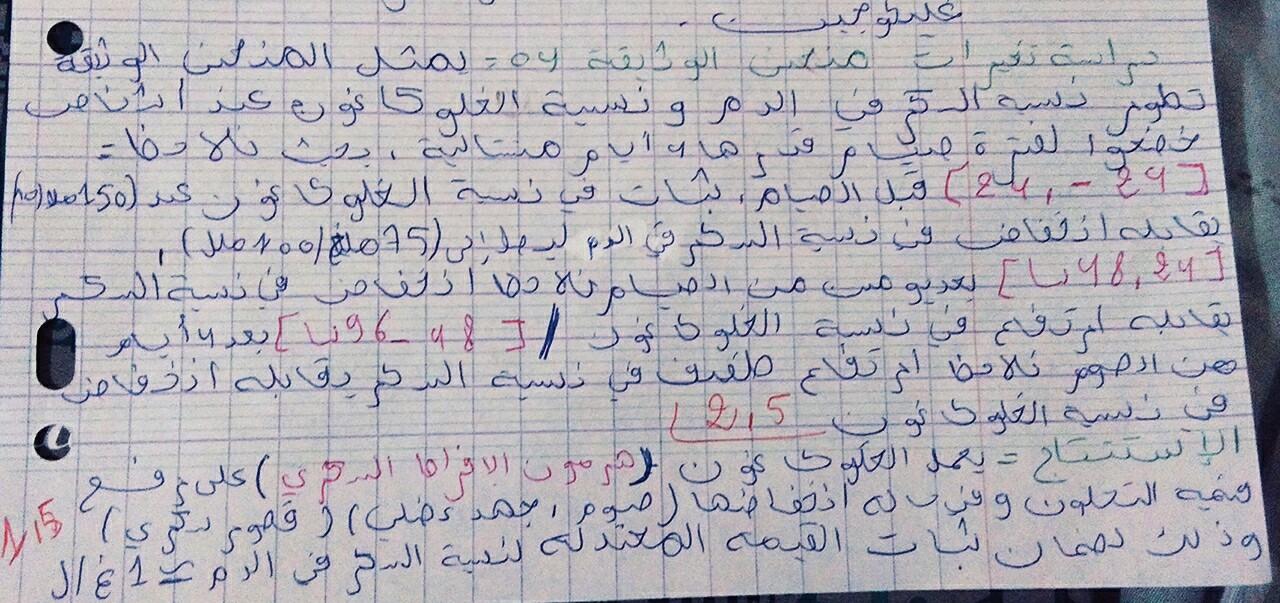 غلوكوجين.
دراسة تغيرات منحنى الوثيقة 04 = يمثل المنحنى الوثيقة
تطور نسبة السكر في الدم و نسبة الغلوكاغون عند أشخاص
خضعوا لفترة صيام قدرها 4 أيام متتالية، بحيث نلاحظ =
[24, - 24] قبل الصيام، ثبات في نسبة الغلوكاغون عند (150
يقابله انخفاض في نسبة السكر في الدم ليصل إلى (75
[24, 48 سا] بعد يومين من الصيام نلاحظ انخفاض في نسبة السكر
يقابله ارتفاع في نسبة الغلوكاغون / [48 - 96 سا] بعد 4 أيام
من الصوم نلاحظ ارتفاع طفيف في نسبة السكر يقابله انخفاض
في نسبة الغلوكاغون 2,5
الإستنتاج = يعمل الغلوكاغون (هرمون الافراط السكري) على رفع
قيمة التحلون و في حالة انخفاضها (صوم، جهد عضلي) (قصور سكري)
1,5
و ذلك لضمان ثبات القيمة المعتدلة لنسبة السكر في الدم = 1 غ/ل